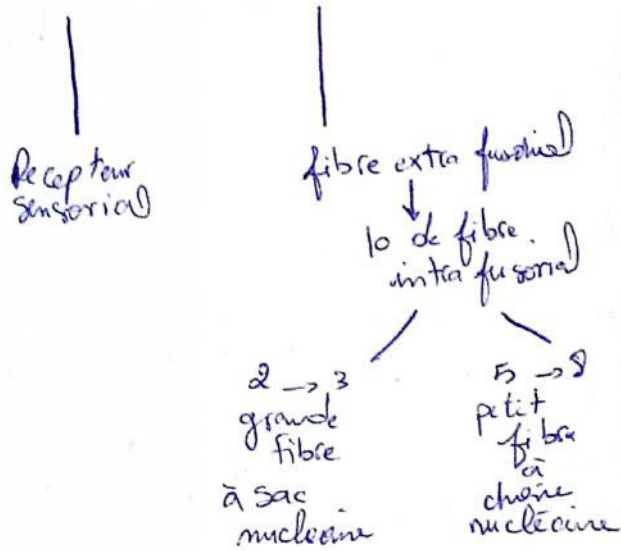 Recepteur
sensoriel
fibre extra fusorial
↓
10 de fibre
intra fusorial
2 → 3
grande
fibre
à sac
nucleaire
5 → 8
petit
fibre
à
chaine
nucléaire